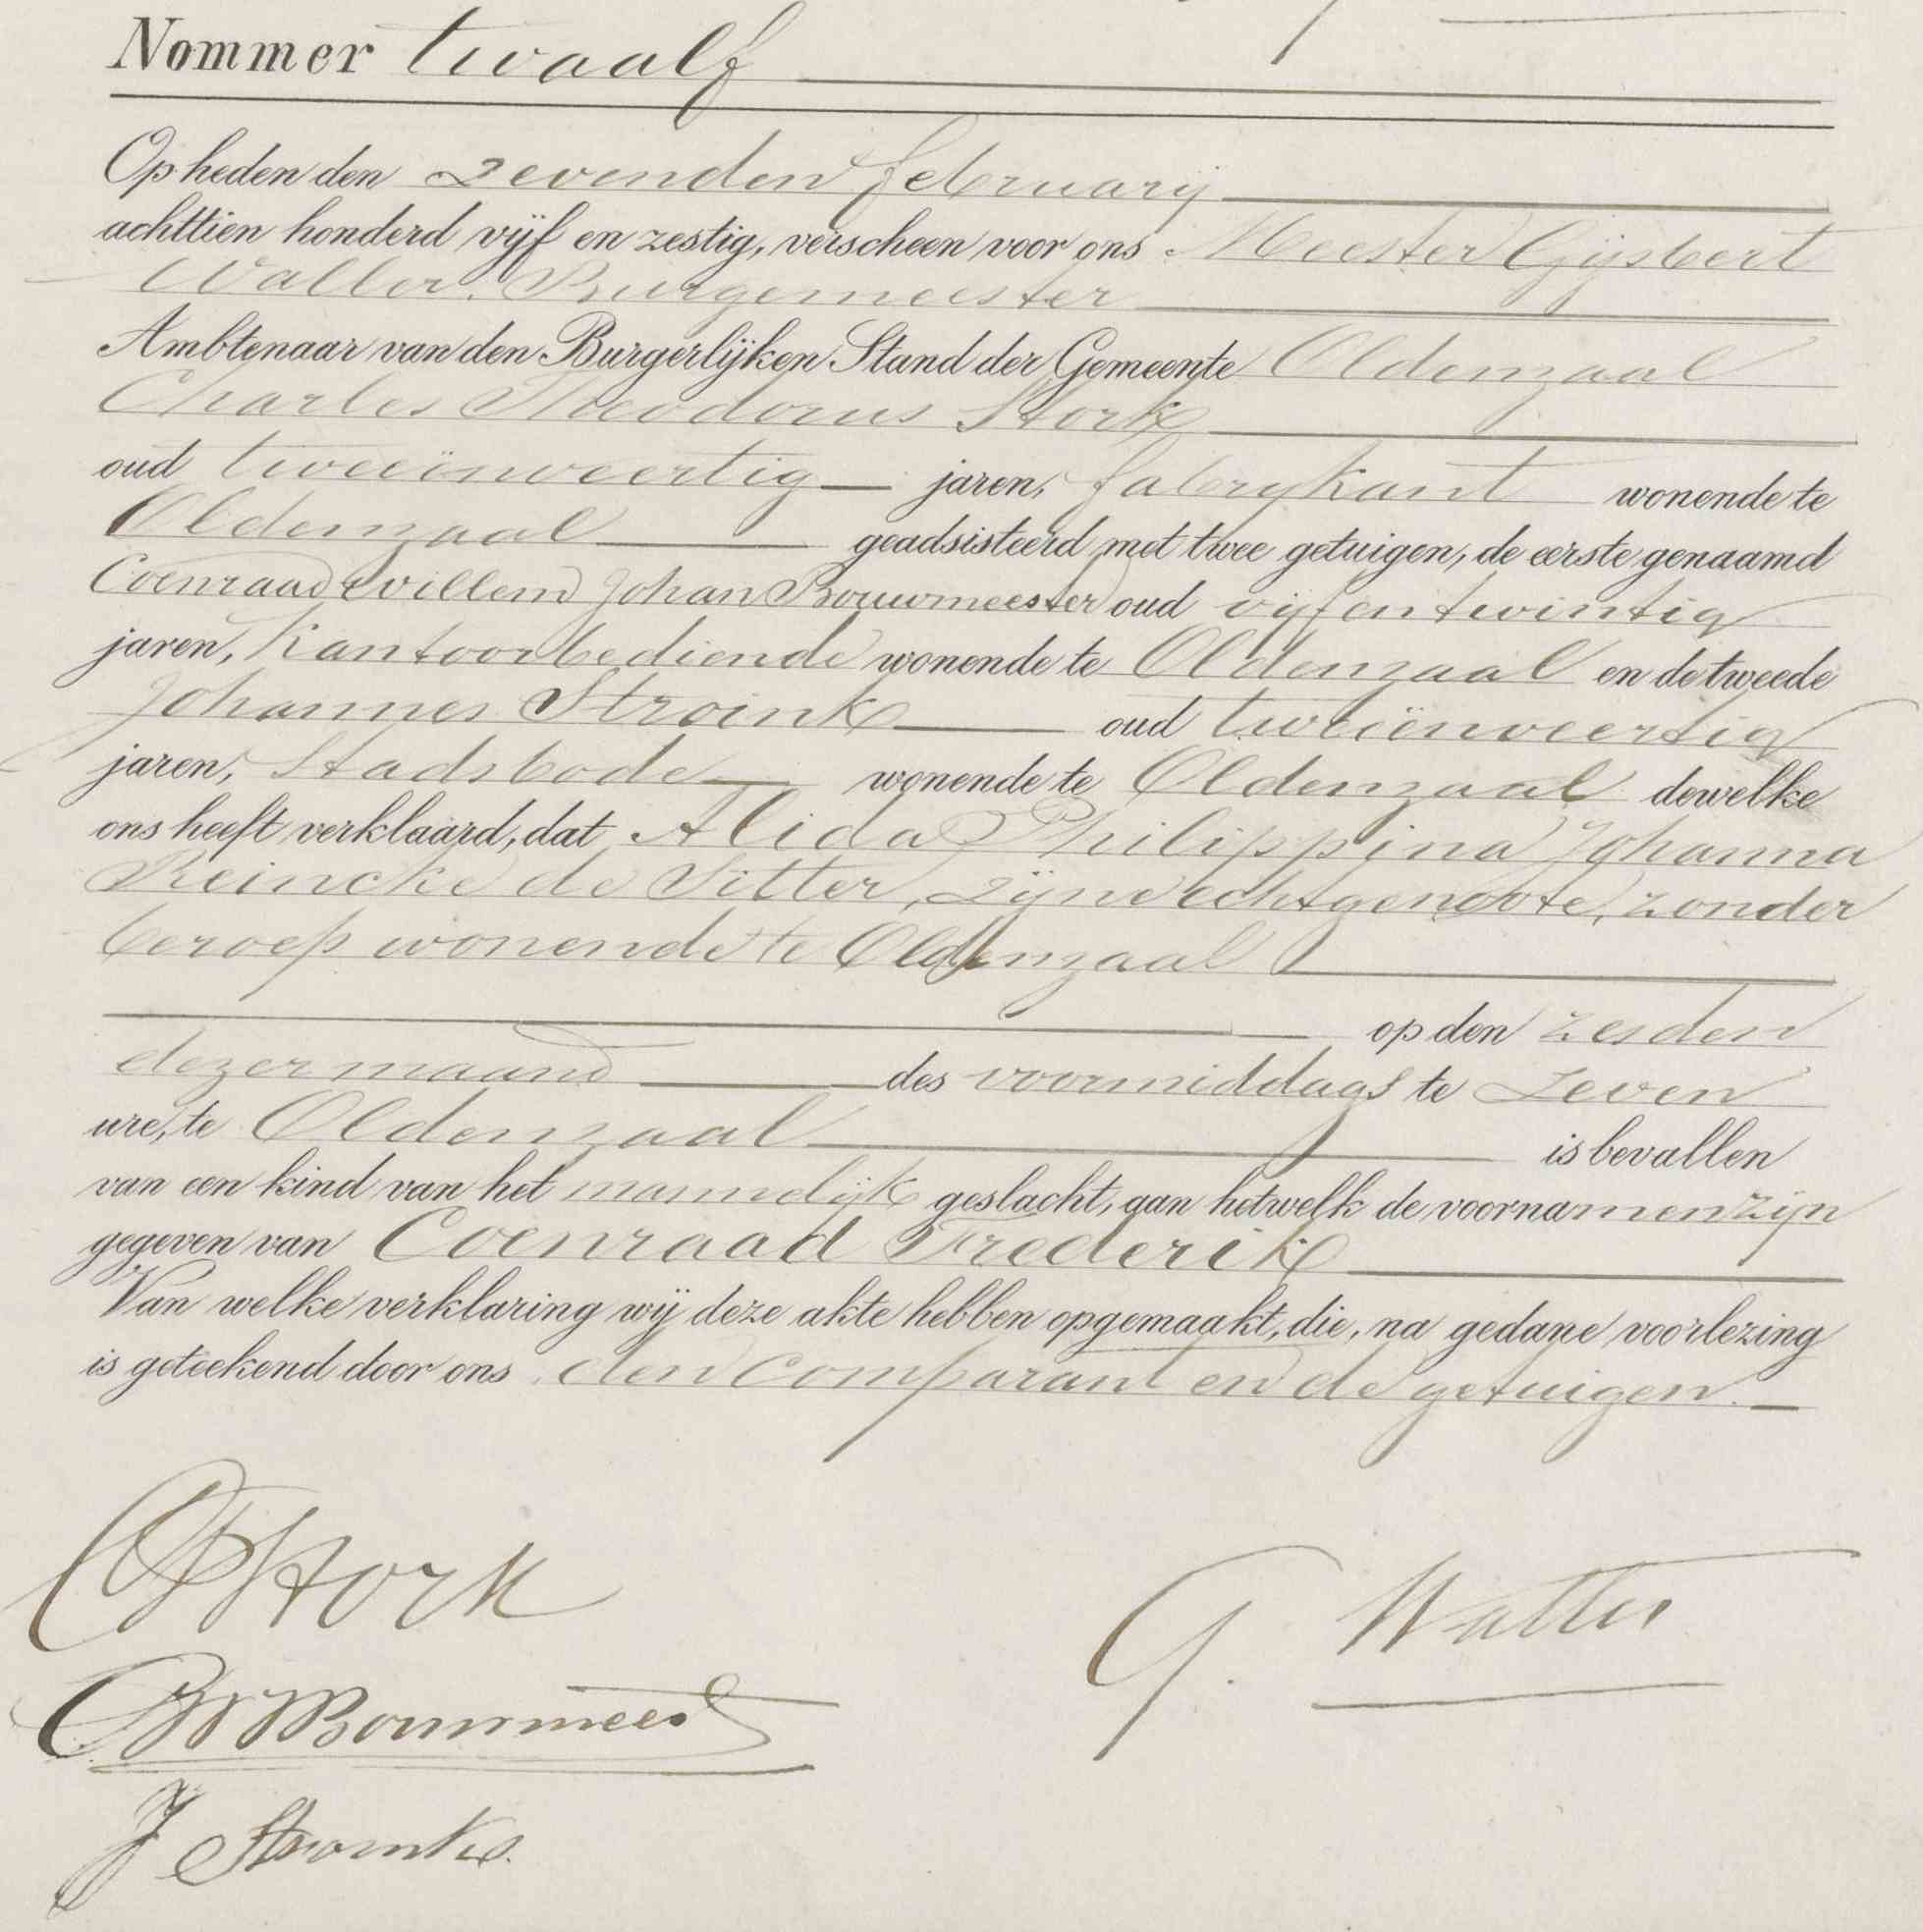 Nommer twaalf
Op heden den zevenden februarij
achttien honderd vijf en zestig, verscheen voor ons Meester Gijsbert
Waller, Burgemeester
Ambtenaar van den Burgerlijken Stand der Gemeente Oldenzaal
Charles Theodorus Stork
oud tweeënveertig jaren, fabrykant wonende te
Oldenzaal geadsisteerd met twee getuigen, de eerste genaamd
Coenraad Willem Johan Bouwmeester oud vijfentwintig
jaren, Kantoorbediende wonende te Oldenzaal en de tweede
Johannes Stroink oud tweeënveertig
jaren, Stadsbode wonende te Oldenzaal dewelke
ons heeft verklaard, dat Alida Philippina Johanna
Reincke de Sitter, zijne echtgenoote, zonder
beroep wonende te Oldenzaal
op den zesden
dezer maand des voormiddags te zeven
ure, te Oldenzaal is bevallen
van een kind van het mannelijk geslacht, aan hetwelk de voornamen zijn
gegeven van Coenraad Frederik
Van welke verklaring wij deze akte hebben opgemaakt, die, na gedane voorlezing
is geteekend door ons den comparant en de getuigen.
CTStork
G. Waller
CWJBouwmeester
J Stroink